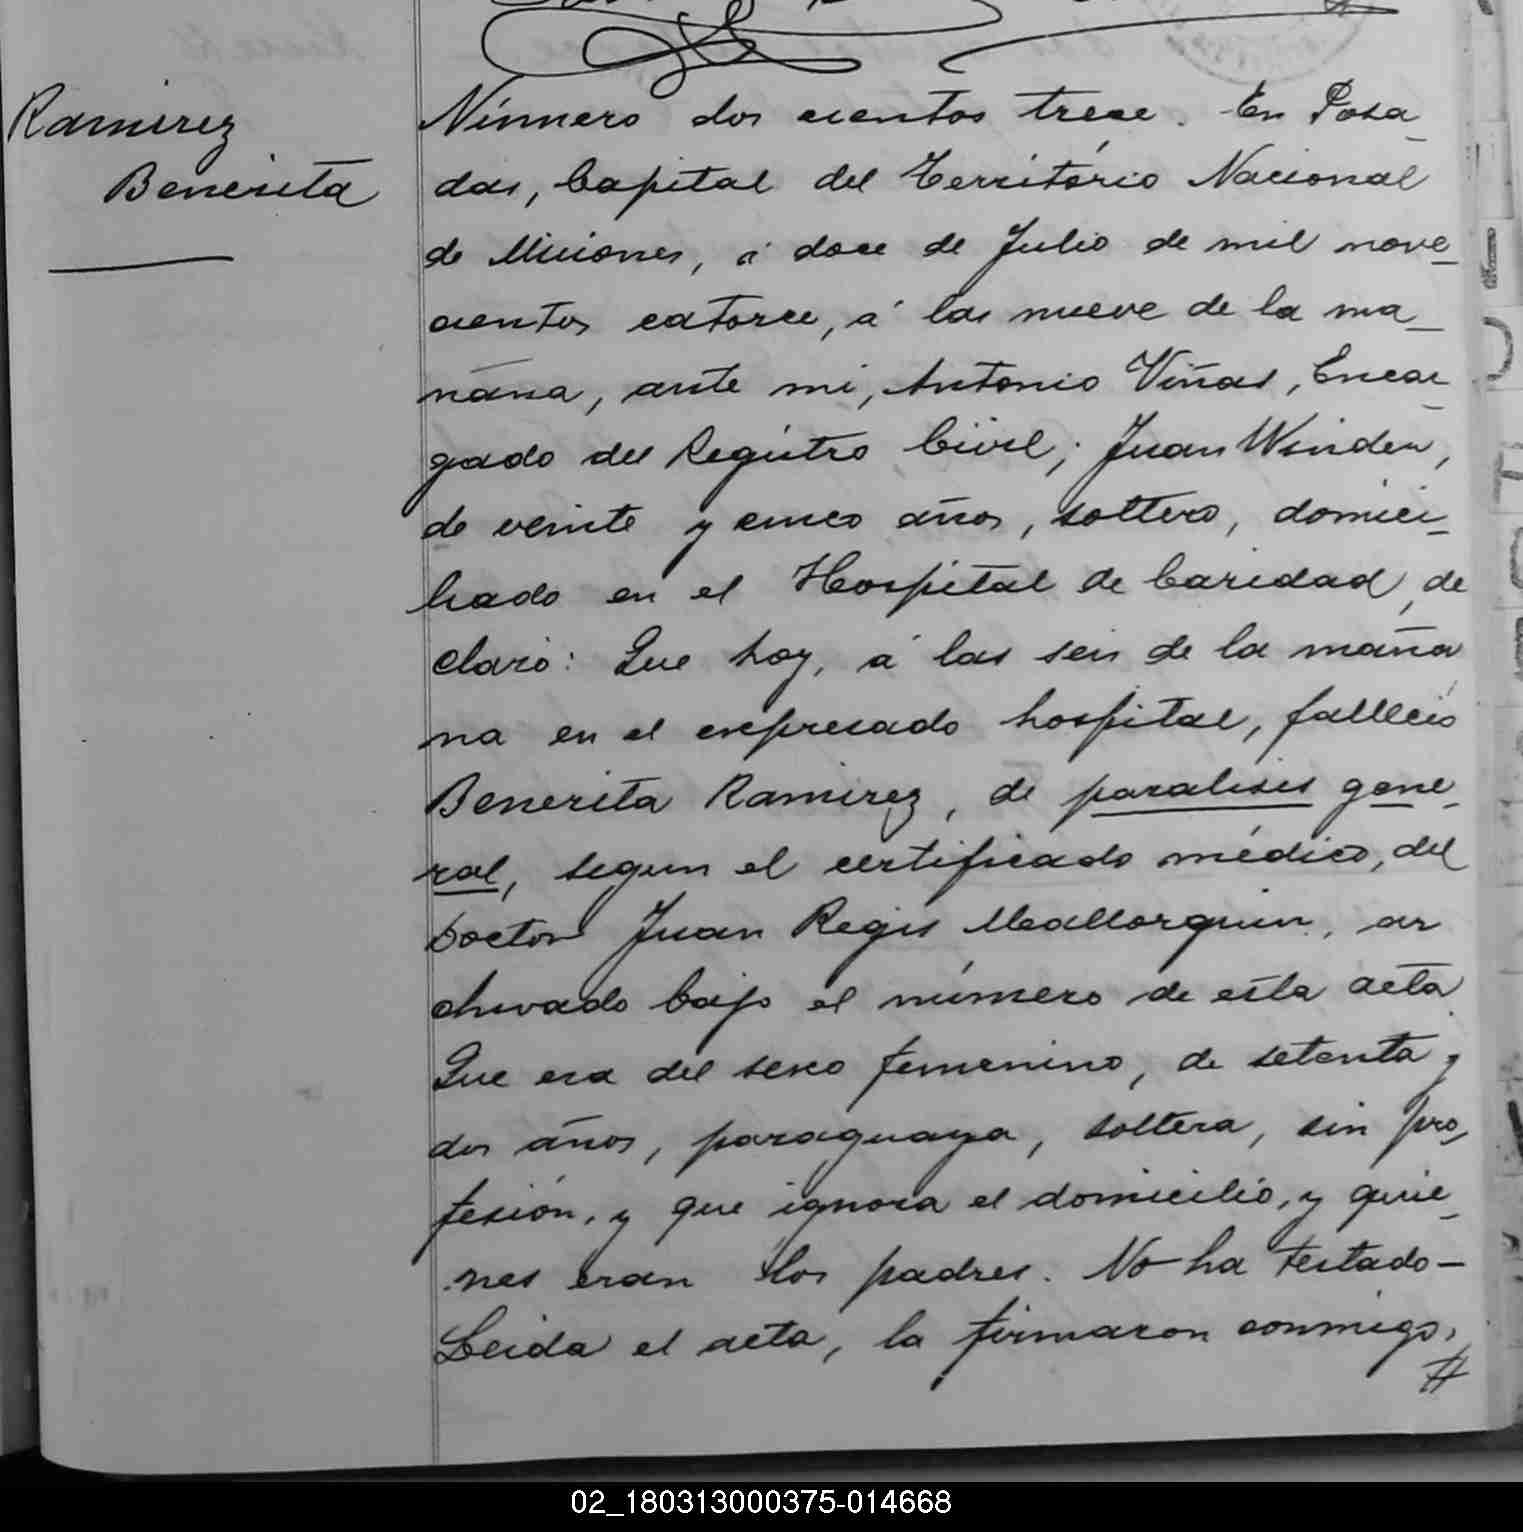 Ramirez
Benerita
Número dos cientos trece. En Posa_
das, Capital del Território Nacional
de Misiones, á doce de Julio de mil nove_
cientos catorce, á las nueve de la ma_
ñana, ante mi, Antonio Viñas, Encar_
gado del Registro Civil; Juan Winden,
de veinte y cinco años, soltero, domici_
liado en el Hospital de Caridad, de
claró: Que hoy, á las seis de la maña
na en el expresado hospital, falleció
Benerita Ramirez, de paralisis gene_
ral, segun el certificado médico, del
Doctor Juan Regis Meallorquin, ar
chivado bajo el número de esta acta
Que era del sexo femenino, de setenta y
dos años, paraguaya, soltera, sin pro_
fesión, y que ignora el domicilio, y quie_
nes eran los padres. No ha testado—
Leida el acta, la firmaron conmigo,
#
02_180313000375-014668